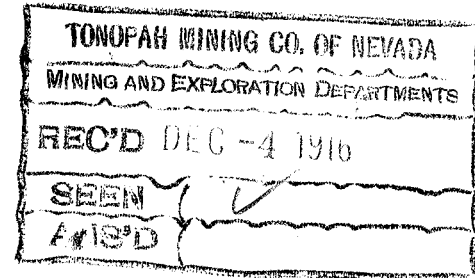 TONOPAH MINING CO. OF NEVADA
MINING AND EXPLORATION DEPARTMENTS
REC'D DEC -4 1916
SEEN
ANS'D